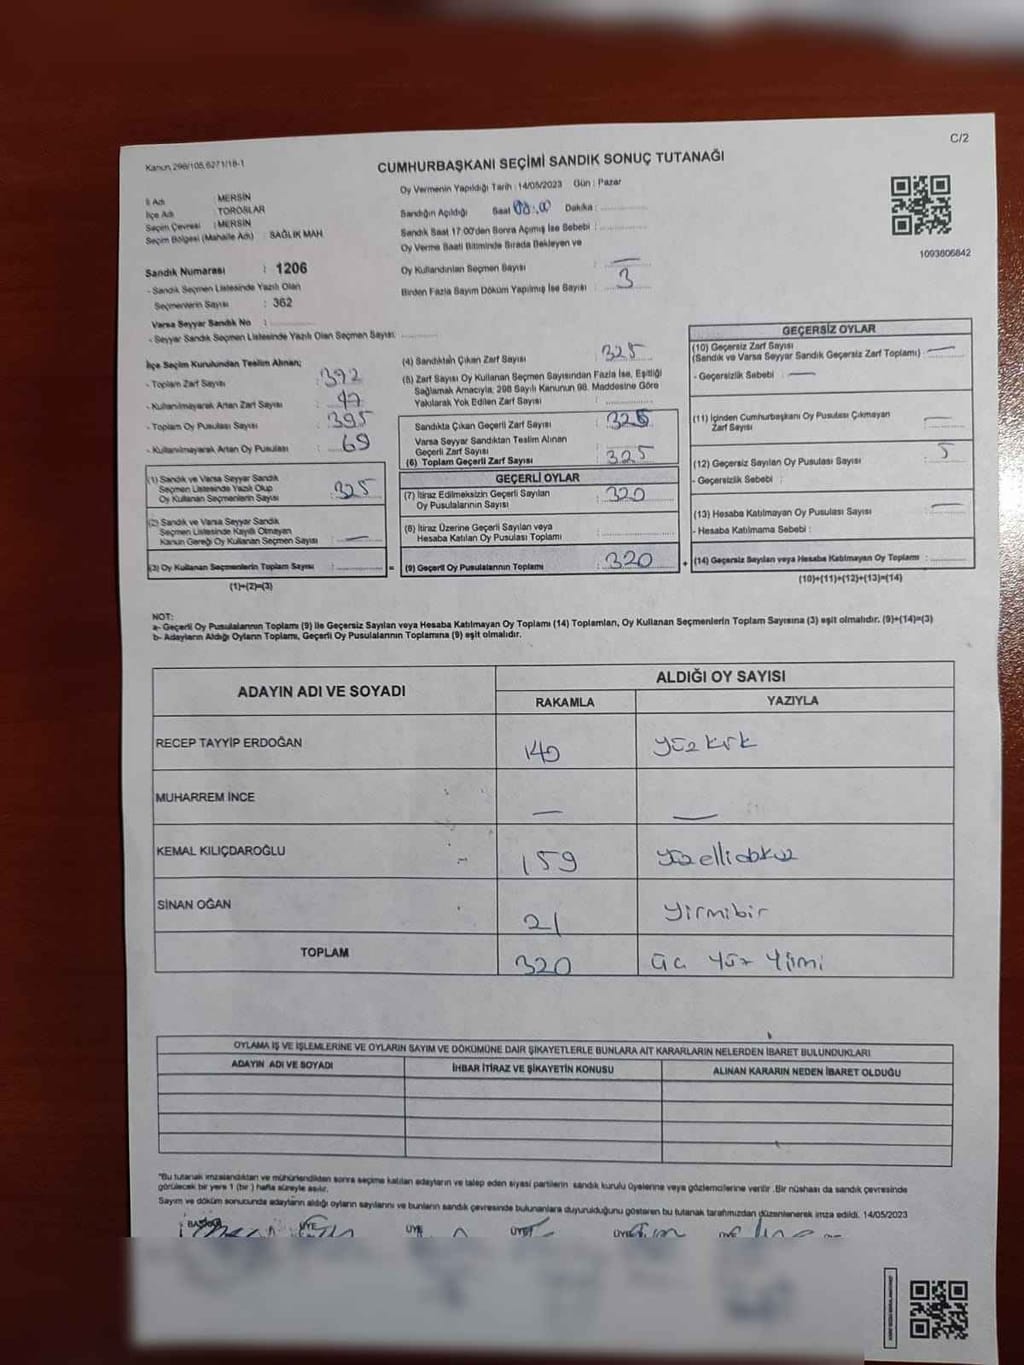 C/2
Kanun 298/105,6271/18-1
CUMHURBAŞKANI SEÇİMİ SANDIK SONUÇ TUTANAĞI
İl Adı : MERSİN
İlçe Adı : TOROSLAR
Seçim Çevresi : MERSİN
Seçim Bölgesi (Mahalle Adı) : SAĞLIK MAH.
Sandık Numarası : 1206
- Sandık Seçmen Listesinde Yazılı Olan
Seçmenlerin Sayısı : 362
Varsa Seyyar Sandık No :
- Seyyar Sandık Seçmen Listesinde Yazılı Olan Seçmen Sayısı:
Oy Vermenin Yapıldığı Tarih : 14/05/2023 Gün : Pazar
Sandığın Açıldığı Saat 08:00 Dakika :
Sandık Saat 17:00'den Sonra Açımış İse Sebebi :
Oy Verme Saati Bitiminde Sırada Bekleyen ve
Oy Kullandırılan Seçmen Sayısı : —
Birden Fazla Sayım Döküm Yapılmış İse Sayısı : 3
1093606842
İlçe Seçim Kurulundan Teslim Alınan;
- Toplam Zarf Sayısı : 392
- Kullanılmayarak Artan Zarf Sayısı : 47
- Toplam Oy Pusulası Sayısı : 395
- Kullanılmayarak Artan Oy Pusulası : 69
(1) Sandık ve Varsa Seyyar Sandık
Seçmen Listesinde Yazılı Olup
Oy Kullanan Seçmenlerin Sayısı : 325
(2) Sandık ve Varsa Seyyar Sandık
Seçmen Listesinde Kayıtlı Olmayan
Kanun Gereği Oy Kullanan Seçmen Sayısı : —
(3) Oy Kullanan Seçmenlerin Toplam Sayısı :
(1)+(2)=(3)
(4) Sandıktan Çıkan Zarf Sayısı : 325
(5) Zarf Sayısı Oy Kullanan Seçmen Sayısından Fazla İse, Eşitliği
Sağlamak Amacıyla, 298 Sayılı Kanunun 98. Maddesine Göre
Yakılarak Yok Edilen Zarf Sayısı :
Sandıkta Çıkan Geçerli Zarf Sayısı : 325
Varsa Seyyar Sandıktan Teslim Alınan
Geçerli Zarf Sayısı :
(6) Toplam Geçerli Zarf Sayısı : 325
GEÇERLİ OYLAR
(7) İtiraz Edilmeksizin Geçerli Sayılan
Oy Pusulalarının Sayısı : 320
(8) İtiraz Üzerine Geçerli Sayılan veya
Hesaba Katılan Oy Pusulası Toplamı :
= (9) Geçerli Oy Pusulalarının Toplamı : 320 +
GEÇERSİZ OYLAR
(10) Geçersiz Zarf Sayısı
(Sandık ve Varsa Seyyar Sandık Geçersiz Zarf Toplamı) : —
- Geçersizlik Sebebi : —
(11) İçinden Cumhurbaşkanı Oy Pusulası Çıkmayan
Zarf Sayısı : —
(12) Geçersiz Sayılan Oy Pusulası Sayısı : 5
- Geçersizlik Sebebi :
(13) Hesaba Katılmayan Oy Pusulası Sayısı : —
- Hesaba Katılmama Sebebi :
(14) Geçersiz Sayılan veya Hesaba Katılmayan Oy Toplamı :
(10)+(11)+(12)+(13)=(14)
NOT:
a- Geçerli Oy Pusulalarının Toplamı (9) ile Geçersiz Sayılan veya Hesaba Katılmayan Oy Toplamı (14) Toplamları, Oy Kullanan Seçmenlerin Toplam Sayısına (3) eşit olmalıdır. (9)+(14)=(3)
b- Adayların Aldığı Oyların Toplamı, Geçerli Oy Pusulalarının Toplamına (9) eşit olmalıdır.
ADAYIN ADI VE SOYADI ALDIĞI OY SAYISI
RAKAMLA YAZIYLA
RECEP TAYYİP ERDOĞAN 140 yüz kırk
MUHARREM İNCE — —
KEMAL KILIÇDAROĞLU 159 yüzellidokuz
SİNAN OĞAN 21 yirmibir
TOPLAM 320 üç yüz yirmi
OYLAMA İŞ VE İŞLEMLERİNE VE OYLARIN SAYIM VE DÖKÜMÜNE DAİR ŞİKAYETLERLE BUNLARA AİT KARARLARIN NELERDEN İBARET BULUNDUKLARI
ADAYIN ADI VE SOYADI İHBAR İTİRAZ VE ŞİKAYETİN KONUSU ALINAN KARARIN NEDEN İBARET OLDUĞU
*Bu tutanak imzalandıktan ve mühürlendikten sonra seçime katılan adayların ve talep eden siyasi partilerin sandık kurulu üyelerine veya gözlemcilerine verilir. Bir nüshası da sandık çevresinde
görülecek bir yere 1 (bir) hafta süreyle asılır.
Sayım ve döküm sonucunda adayların aldığı oyların sayılarını ve bunların sandık çevresinde bulunanlara duyurulduğunu gösteren bu tutanak tarafımızdan düzenlenerek imza edildi. 14/05/2023
BAŞKAN ÜYE ÜYE ÜYE ÜYE ÜYE